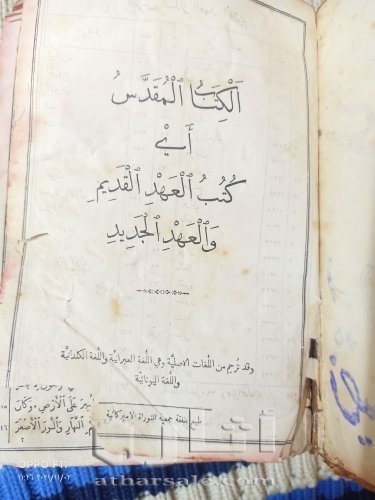 اَلْكِتَابُ الْمُقَدَّسُ
أَيْ
كُتُبُ الْعَهْدِ الْقَدِيمِ
وَالْعَهْدِ الْجَدِيدِ
وقد تُرجم من اللغات الاصلية وهي اللغة العبرانية واللغة الكلدانية
واللغة اليونانية
طبع بنفقة جمعية التوراة الاميركانية
عَلَى الْأَرْضِ. وَكَانَ
النَّهَارِ وَالنُّورَ الْأَصْغَرَ
OPPO F11
atharsale.com